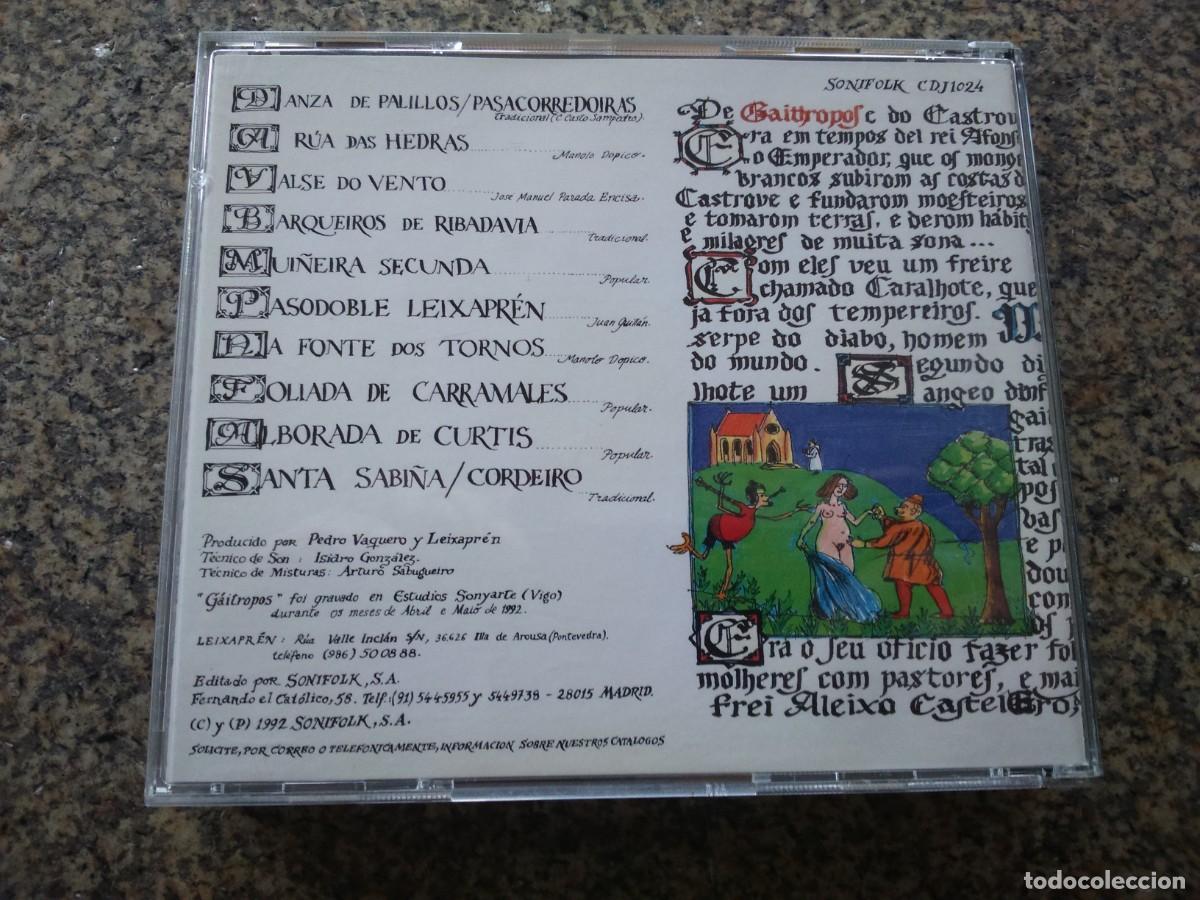 DANZA DE PALILLOS/PASACORREDOIRAS
Tradicional (C. Casto Sampedro).
A RÚA DAS HEDRAS
Manolo Dopico.
VALSE DO VENTO
Jose Manuel Parada Encisa.
BARQUEIROS DE RIBADAVIA
Tradicional.
MUIÑEIRA SECUNDA
Popular.
PASODOBLE LEIXAPRÉN
Juan Guitán.
NA FONTE DOS TORNOS
Manolo Dopico.
FOLIADA DE CARRAMALES
Popular.
ALBORADA DE CURTIS
Popular.
SANTA SABIÑA/CORDEIRO
Tradicional.
Producido por Pedro Vaquero y Leixaprén
Técnico de Son: Isidro González.
Técnico de Misturas: Arturo Sabugueiro
"Gáitropos" foi gravado en Estudios Sonyarte (Vigo)
durante os meses de Abril e Maio de 1992.
LEIXAPRÉN: Rúa Valle Inclán S/N, 36.626 Illa de Arousa (Pontevedra).
teléfono (986) 50 08 88.
Editado por SONIFOLK, S.A.
Fernando el Católico, 58. Telf: (91) 5445955 y 5449738 - 28015 MADRID.
(C) y (P) 1992 SONIFOLK, S.A.
SOLICITE, POR CORREO O TELEFONICAMENTE, INFORMACION SOBRE NUESTROS CATALOGOS
SONIFOLK CDJ1024
De Gaithropos e do Castrov
Era em tempos del rei Afons
o Emperador, que os mong
brancos subirom as costas d
Castrove e fundarom moesteiros
e tomarom terras, e derom habit
e milagres de muita sona...
Com eles veu um freire
chamado Caralhote, que
ja fora dos tempereiros.
serpe do diabo, homem
do mundo. Segundo di
lhote um angeo
gai
tras
tal
pos
vas
e p
dou
con
os
Era o seu oficio fazer fol
molheres com pastores, e mai
frei Aleixo
todocoleccion